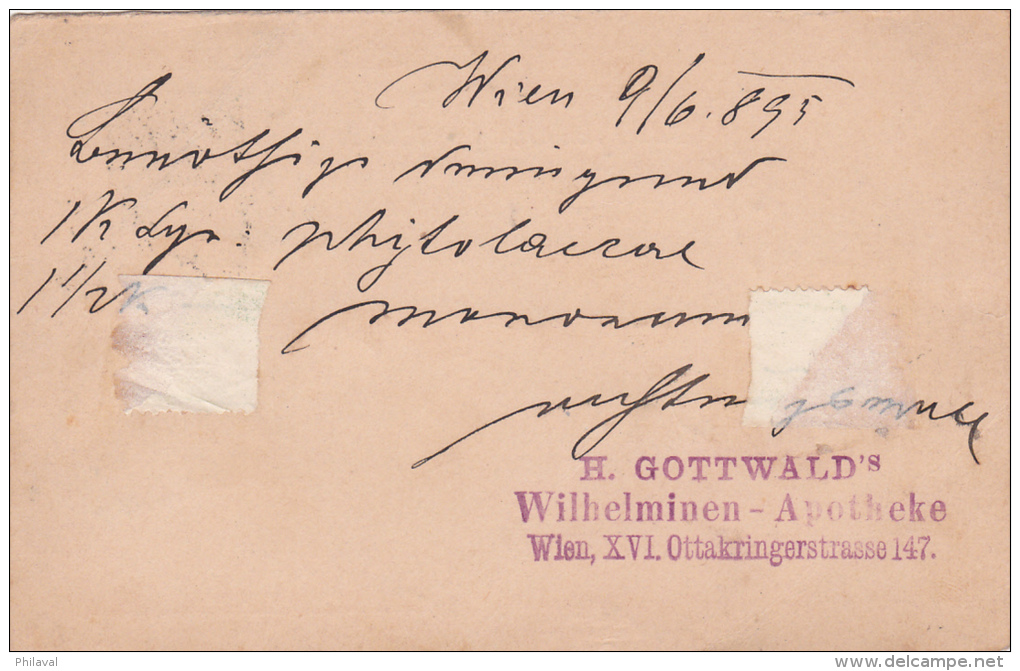 Wien 9/6. 895
Benöthige dringend
1 K Syr. phytolaccae
1 1/2 K
H. GOTTWALD's
Wilhelminen - Apotheke
Wien, XVI. Ottakringerstrasse 147.
Philaval
delcampe.net